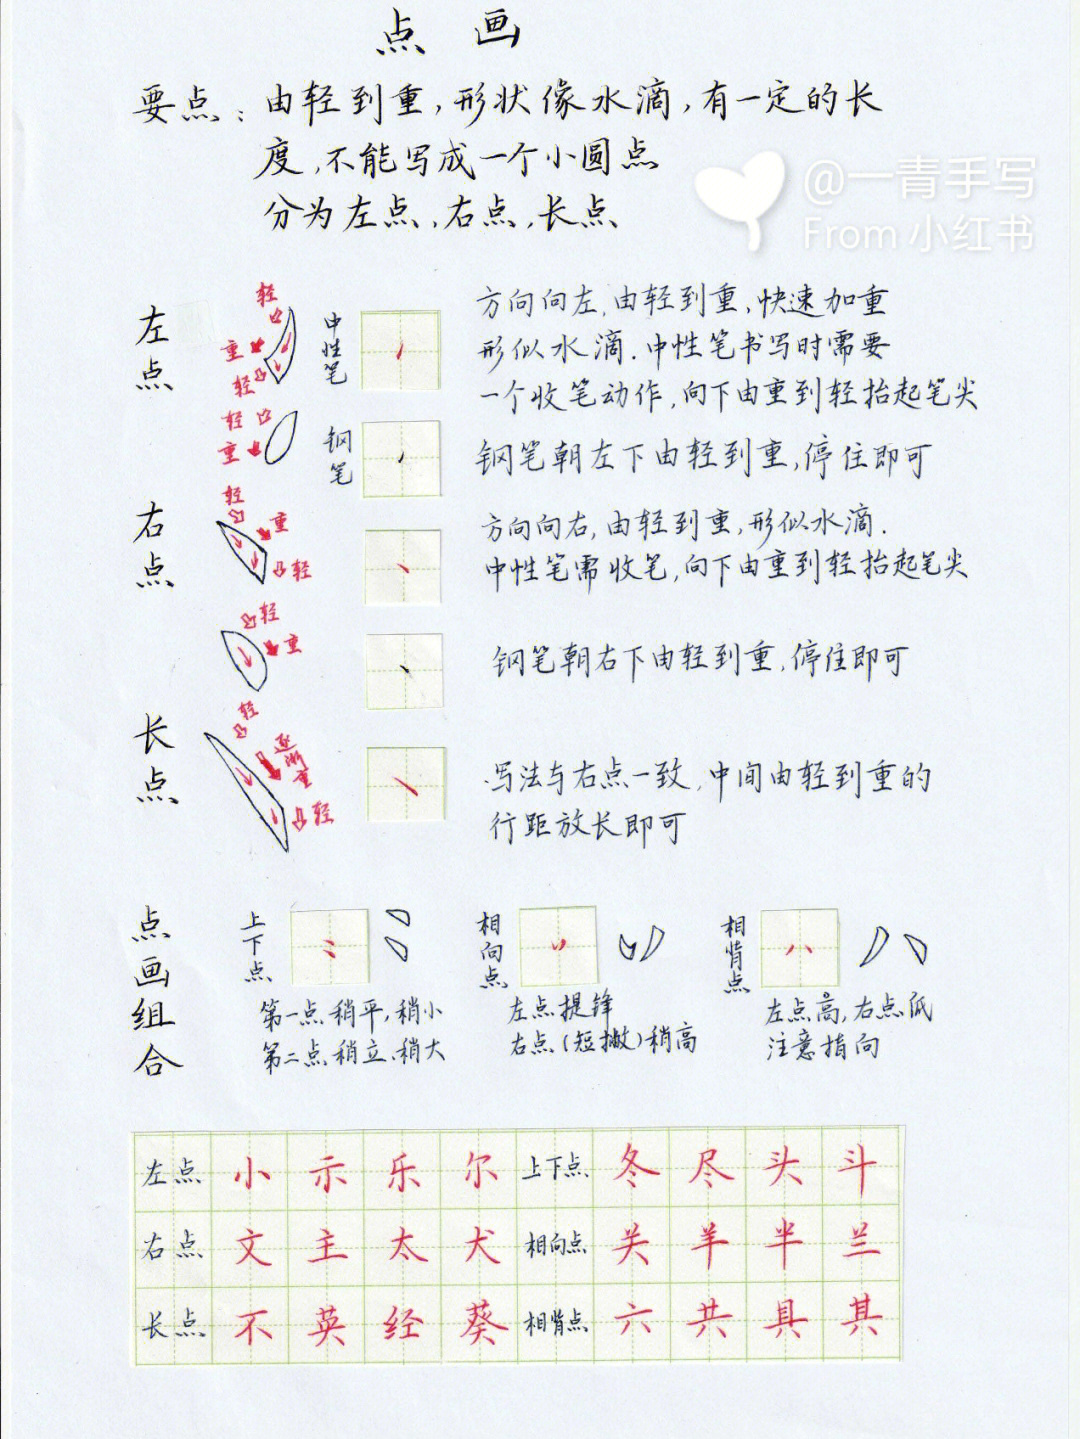 点画
要点：由轻到重，形状像水滴，有一定的长
度，不能写成一个小圆点
分为左点，右点，长点
@一青手写
From 小红书
左点
轻
重
轻
中性笔
方向向左，由轻到重，快速加重
形似水滴．中性笔书写时需要
一个收笔动作，向下由重到轻抬起笔尖
轻
重
钢笔
钢笔朝左下由轻到重，停住即可
右点
轻
重
轻
方向向右，由轻到重，形似水滴．
中性笔需收笔，向下由重到轻抬起笔尖
轻
重
钢笔朝右下由轻到重，停住即可
长点
轻
逐渐重
轻
写法与右点一致，中间由轻到重的
行距放长即可
点画组合
上下点
第一点稍平，稍小
第二点稍立、稍大
相向点
左点提锋
右点（短撇）稍高
相背点
左点高，右点低
注意指向
左点 小 示 乐 尔 上下点 冬 尽 头 斗
右点 文 主 太 犬 相向点 关 羊 半 兰
长点 不 英 经 葵 相背点 六 共 具 其